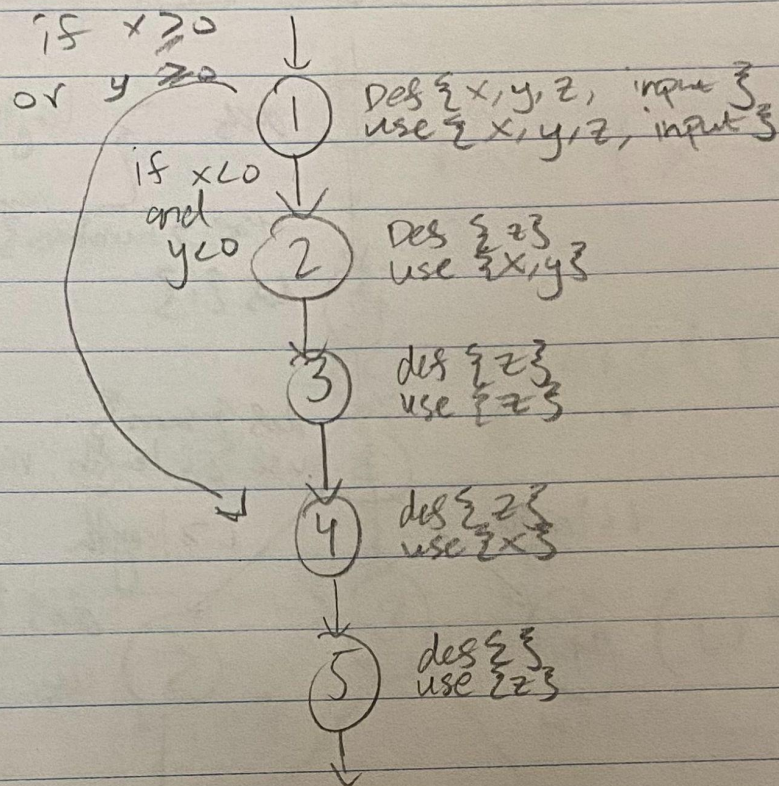 if x ≥ 0
or y ≥ 0
1
Def {x, y, z, input}
use {x, y, z, input}
if x<0
and
y<0
2
Def {z}
use {x, y}
3
def {z}
use {z}
4
def {z}
use {x}
5
def { }
use {z}